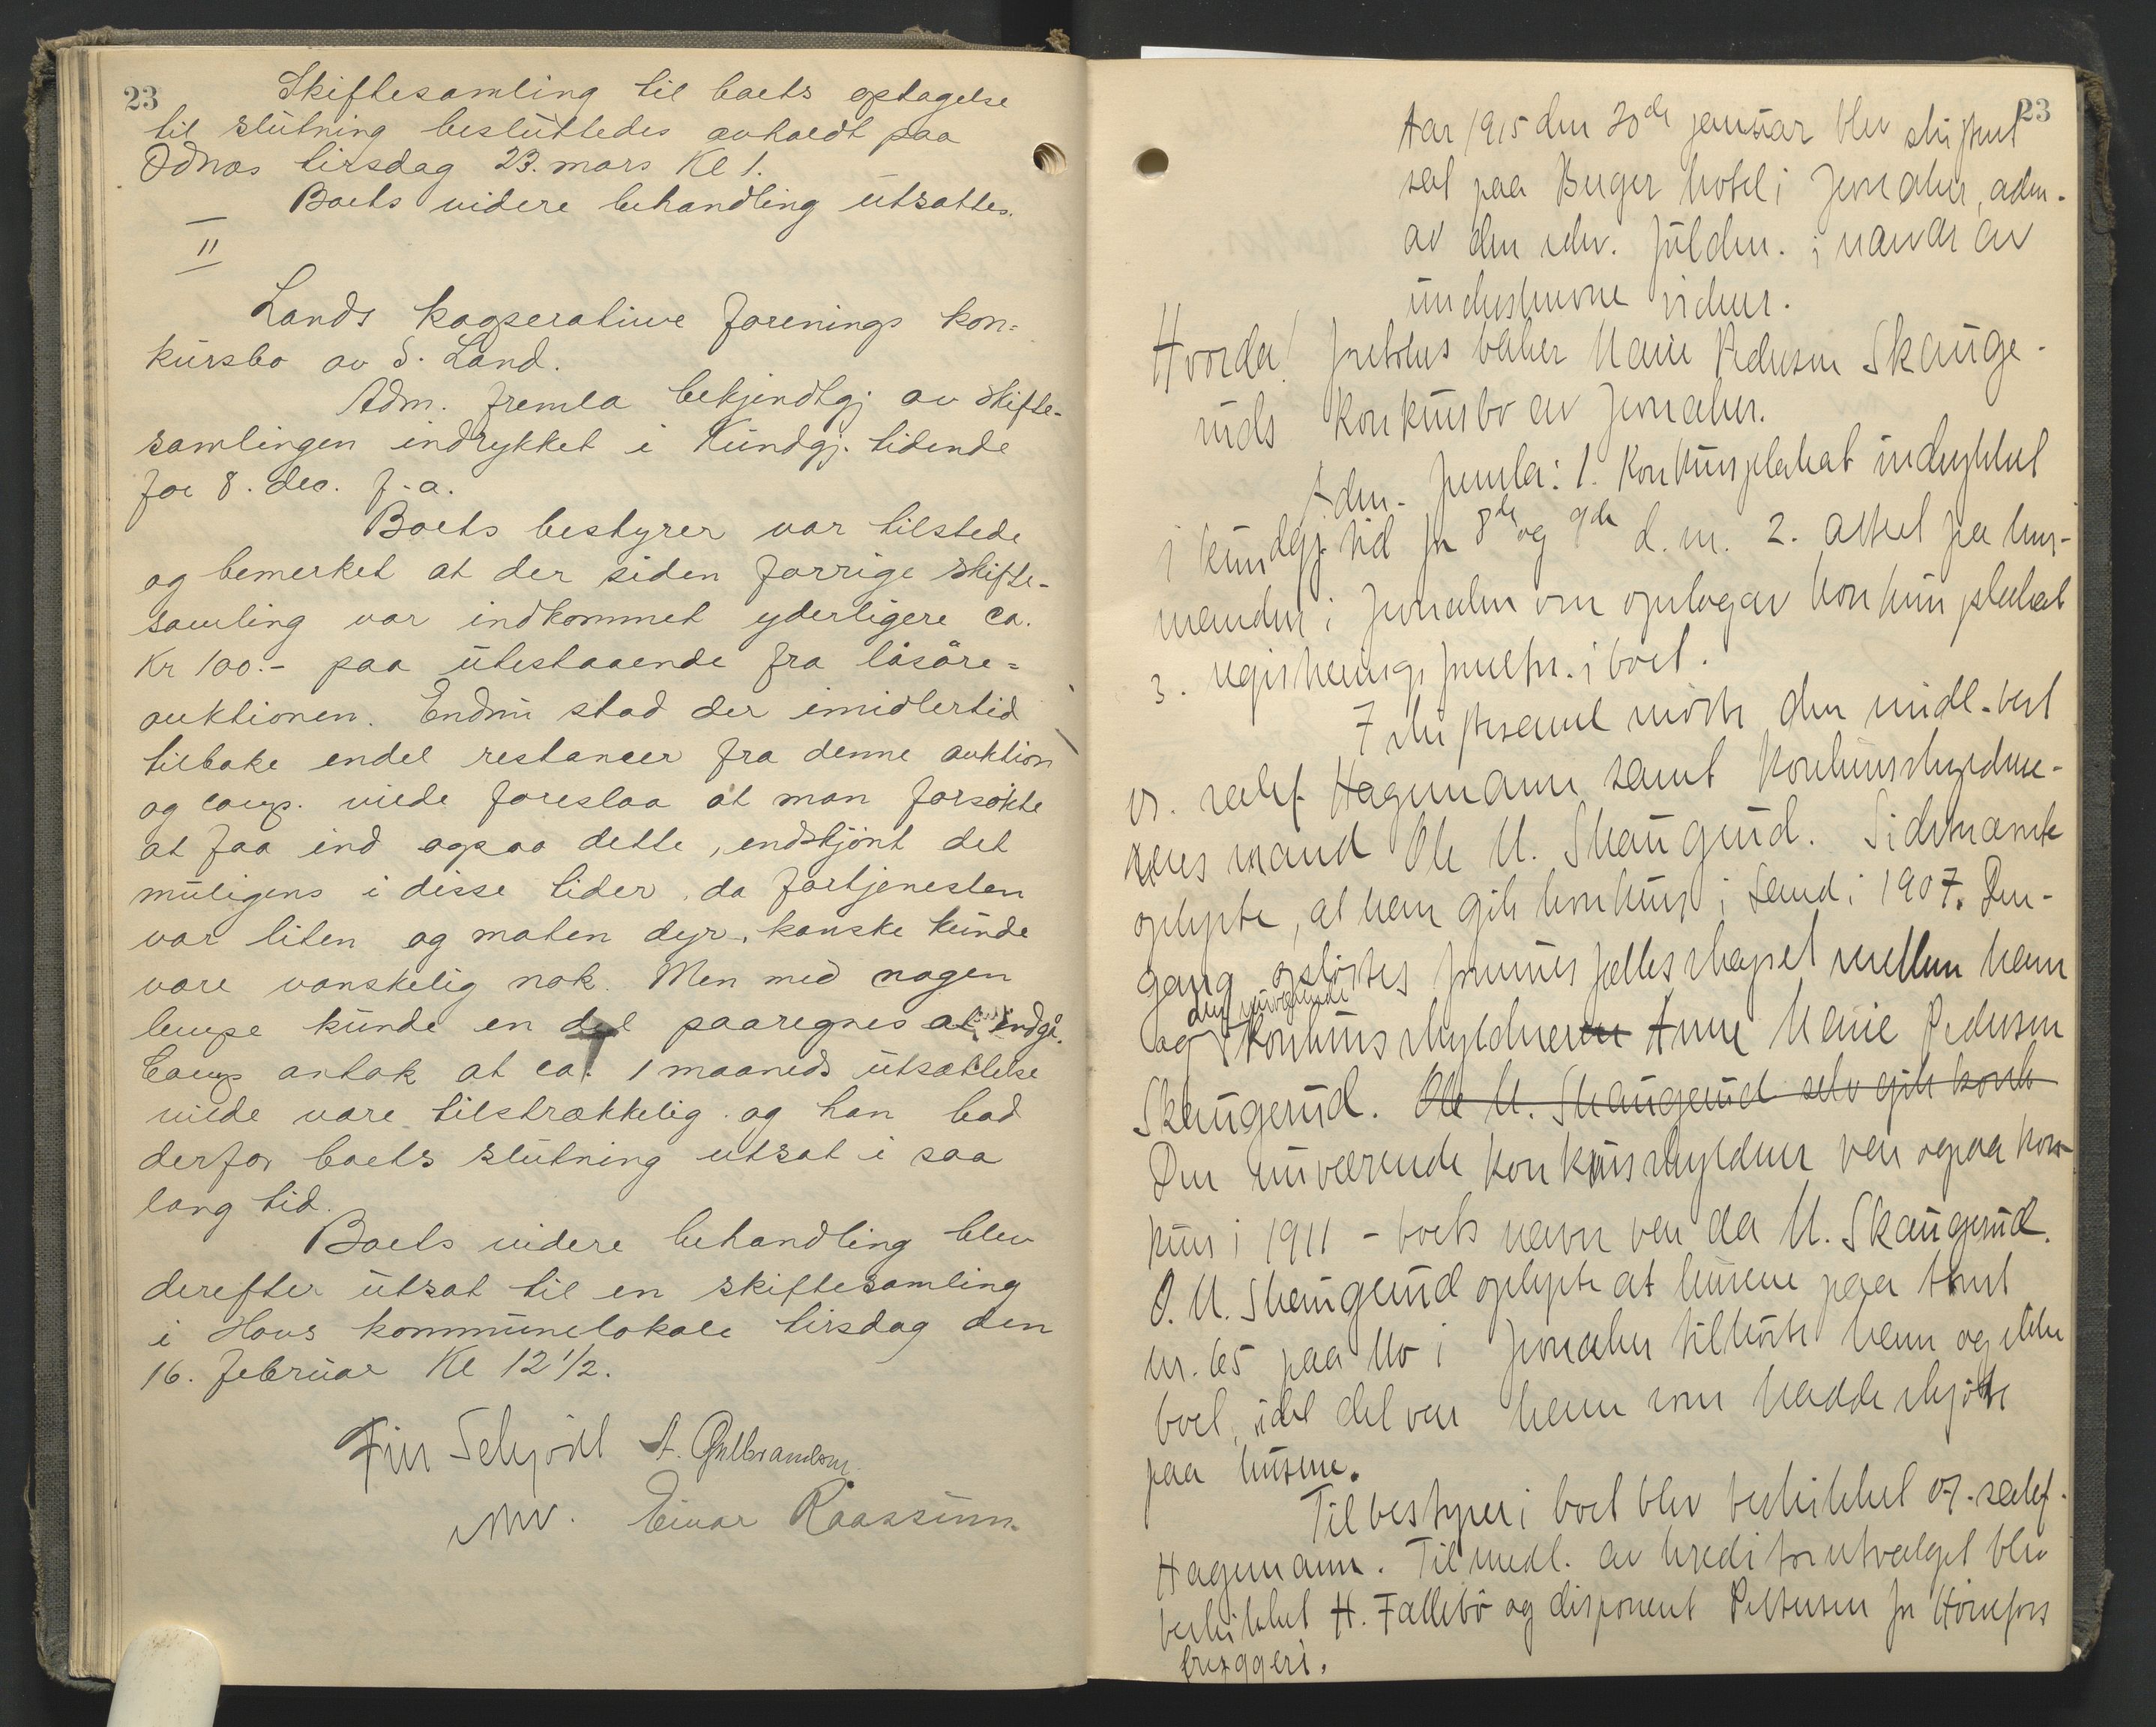 23
Skiftesamling til boets optagelse
til slutning besluttedes avholdt paa
Odnæs tirsdag 23. mars Kl 1.
Boets videre behandling utsattes.
II
Lands kooperative forenings kon=
kursbo av S. Land.
Adm. fremla bekjendtgj av skifte-
samlingen indrykket i Kundgj. tidende
for 8. dec. f. a.
Boets bestyrer var tilstede
og bemerket at der siden forrige skifte-
samling var indkommet yderligere ca.
Kr 100.- paa utestaaende fra løsøre=
auktionen. Endnu stod der imidlertid
tilbake endel restancer fra denne auktion
og comp. vilde foreslaa at man forsøkte
at faa ind ogsaa dette, endskjønt det
muligens i disse tider, da fortjenesten
var liten og maten dyr, kanske kunde
være vanskelig nok. Men med nogen
lempe kunde en del paaregnes at indgå.
Comp antok at ca. 1 maaneds utsættelse
vilde være tilstrækkelig og han bad
derfor boets slutning utsat i saa
lang tid.
Boets videre behandling blev
derefter utsat til en skiftesamling
i Hovs kommunelokale tirsdag den
16. februar Kl 12 1/2.
Finn Schjödt A. Gulbrandsen
Einar Raassum
23
Aar 1915 den 20de januar blev skifteret
sat paa Berger hotel i Jevnaker, adm.
av den edsv. fuldm. i nærvær av
underskrevne vidner.
Hvorda! foretokes baker Marie Pedersen Skauge-
ruds konkursbo av Jevnaker.
Adm. fremla: 1. Konkursplakat indrykket
i kundgj. tid for 8de og 9de d. m. 2. attest fra lens-
manden i Jevnaker om opslag av konkursplakat
3. registreringsforretn. i boet.
I skiftesaml møtte den midl. best
o. sakf. Hagemann samt konkursskyldne-
rens mand Ole M. Skaugerud. Sidstnævnte
oplyste, at han gik konkurs i Land i 1907. Den-
gang opløstes formuesfællesskapet mellem ham
og den nuværende konkursskyldner Anne Marie Pedersen
Skaugerud. Ole M. Skaugerud selv gik konk
Den nuværende konkursskyldner var ogsaa kon-
kurs i 1911 - boets navn var da M. Skaugerud.
O. M. Skaugerud oplyste at husene paa tomt
nr. 65 paa Mo i Jevnaker tilhørte ham og ikke
boet, idet det var ham som hadde skjøte
paa husene.
Til bestyrer i boet blev beskikket o. sakf.
Hagemann. Til medl. av kreditorutvalget blev
beskikket H. Fallebø og disponent Pettersen for Hønefoss
bryggeri.